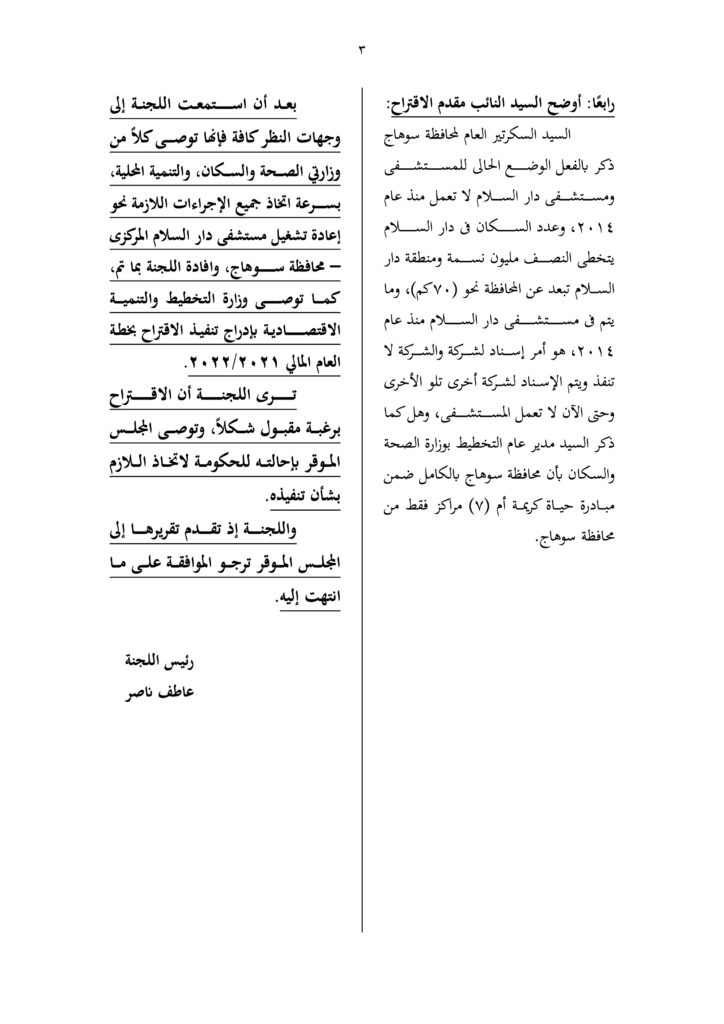 ٣
رابعًا: أوضح السيد النائب مقدم الاقتراح:
السيد السكرتير العام لمحافظة سوهاج
ذكر بالفعل الوضع الحالى للمستشفى
ومستشفى دار السلام لا تعمل منذ عام
٢٠١٤، وعدد السكان فى دار السلام
يتخطى النصف مليون نسمة ومنطقة دار
السلام تبعد عن المحافظة نحو (٧٠كم)، وما
يتم فى مستشفى دار السلام منذ عام
٢٠١٤، هو أمر إسناد لشركة والشركة لا
تنفذ ويتم الإسناد لشركة أخرى تلو الأخرى
وحتى الآن لا تعمل المستشفى، وهل كما
ذكر السيد مدير عام التخطيط بوزارة الصحة
والسكان بأن محافظة سوهاج بالكامل ضمن
مبادرة حياة كريمة أم (٧) مراكز فقط من
محافظة سوهاج.
بعد أن استمعت اللجنة إلى
وجهات النظر كافة فإنها توصى كلاً من
وزارتي الصحة والسكان، والتنمية المحلية،
بسرعة اتخاذ جميع الإجراءات اللازمة نحو
إعادة تشغيل مستشفى دار السلام المركزى
– محافظة سوهاج، وافادة اللجنة بما تم،
كما توصى وزارة التخطيط والتنمية
الاقتصادية بإدراج تنفيذ الاقتراح بخطة
العام المالي ٢٠٢٢/٢٠٢١.
ترى اللجنة أن الاقتراح
برغبة مقبول شكلاً، وتوصى المجلس
الموقر بإحالته للحكومة لاتخاذ اللازم
بشأن تنفيذه.
واللجنة إذ تقدم تقريرها إلى
المجلس الموقر ترجو الموافقة على ما
انتهت إليه.
رئيس اللجنة
عاطف ناصر